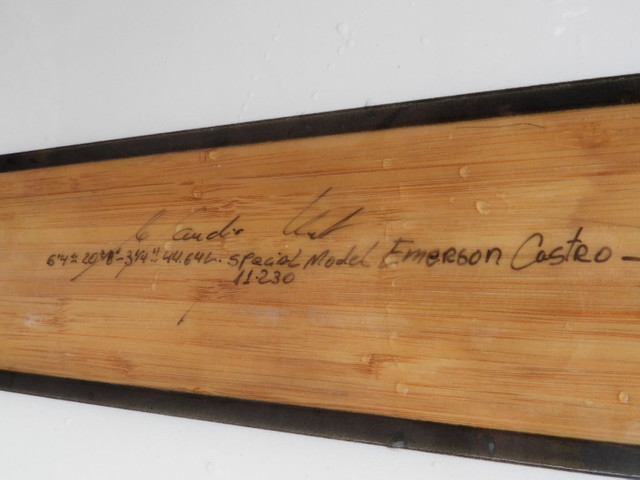 6'4" 20 3/8" - 3 1/4" 44.64L. Special Model Emerson Castro -
11.230